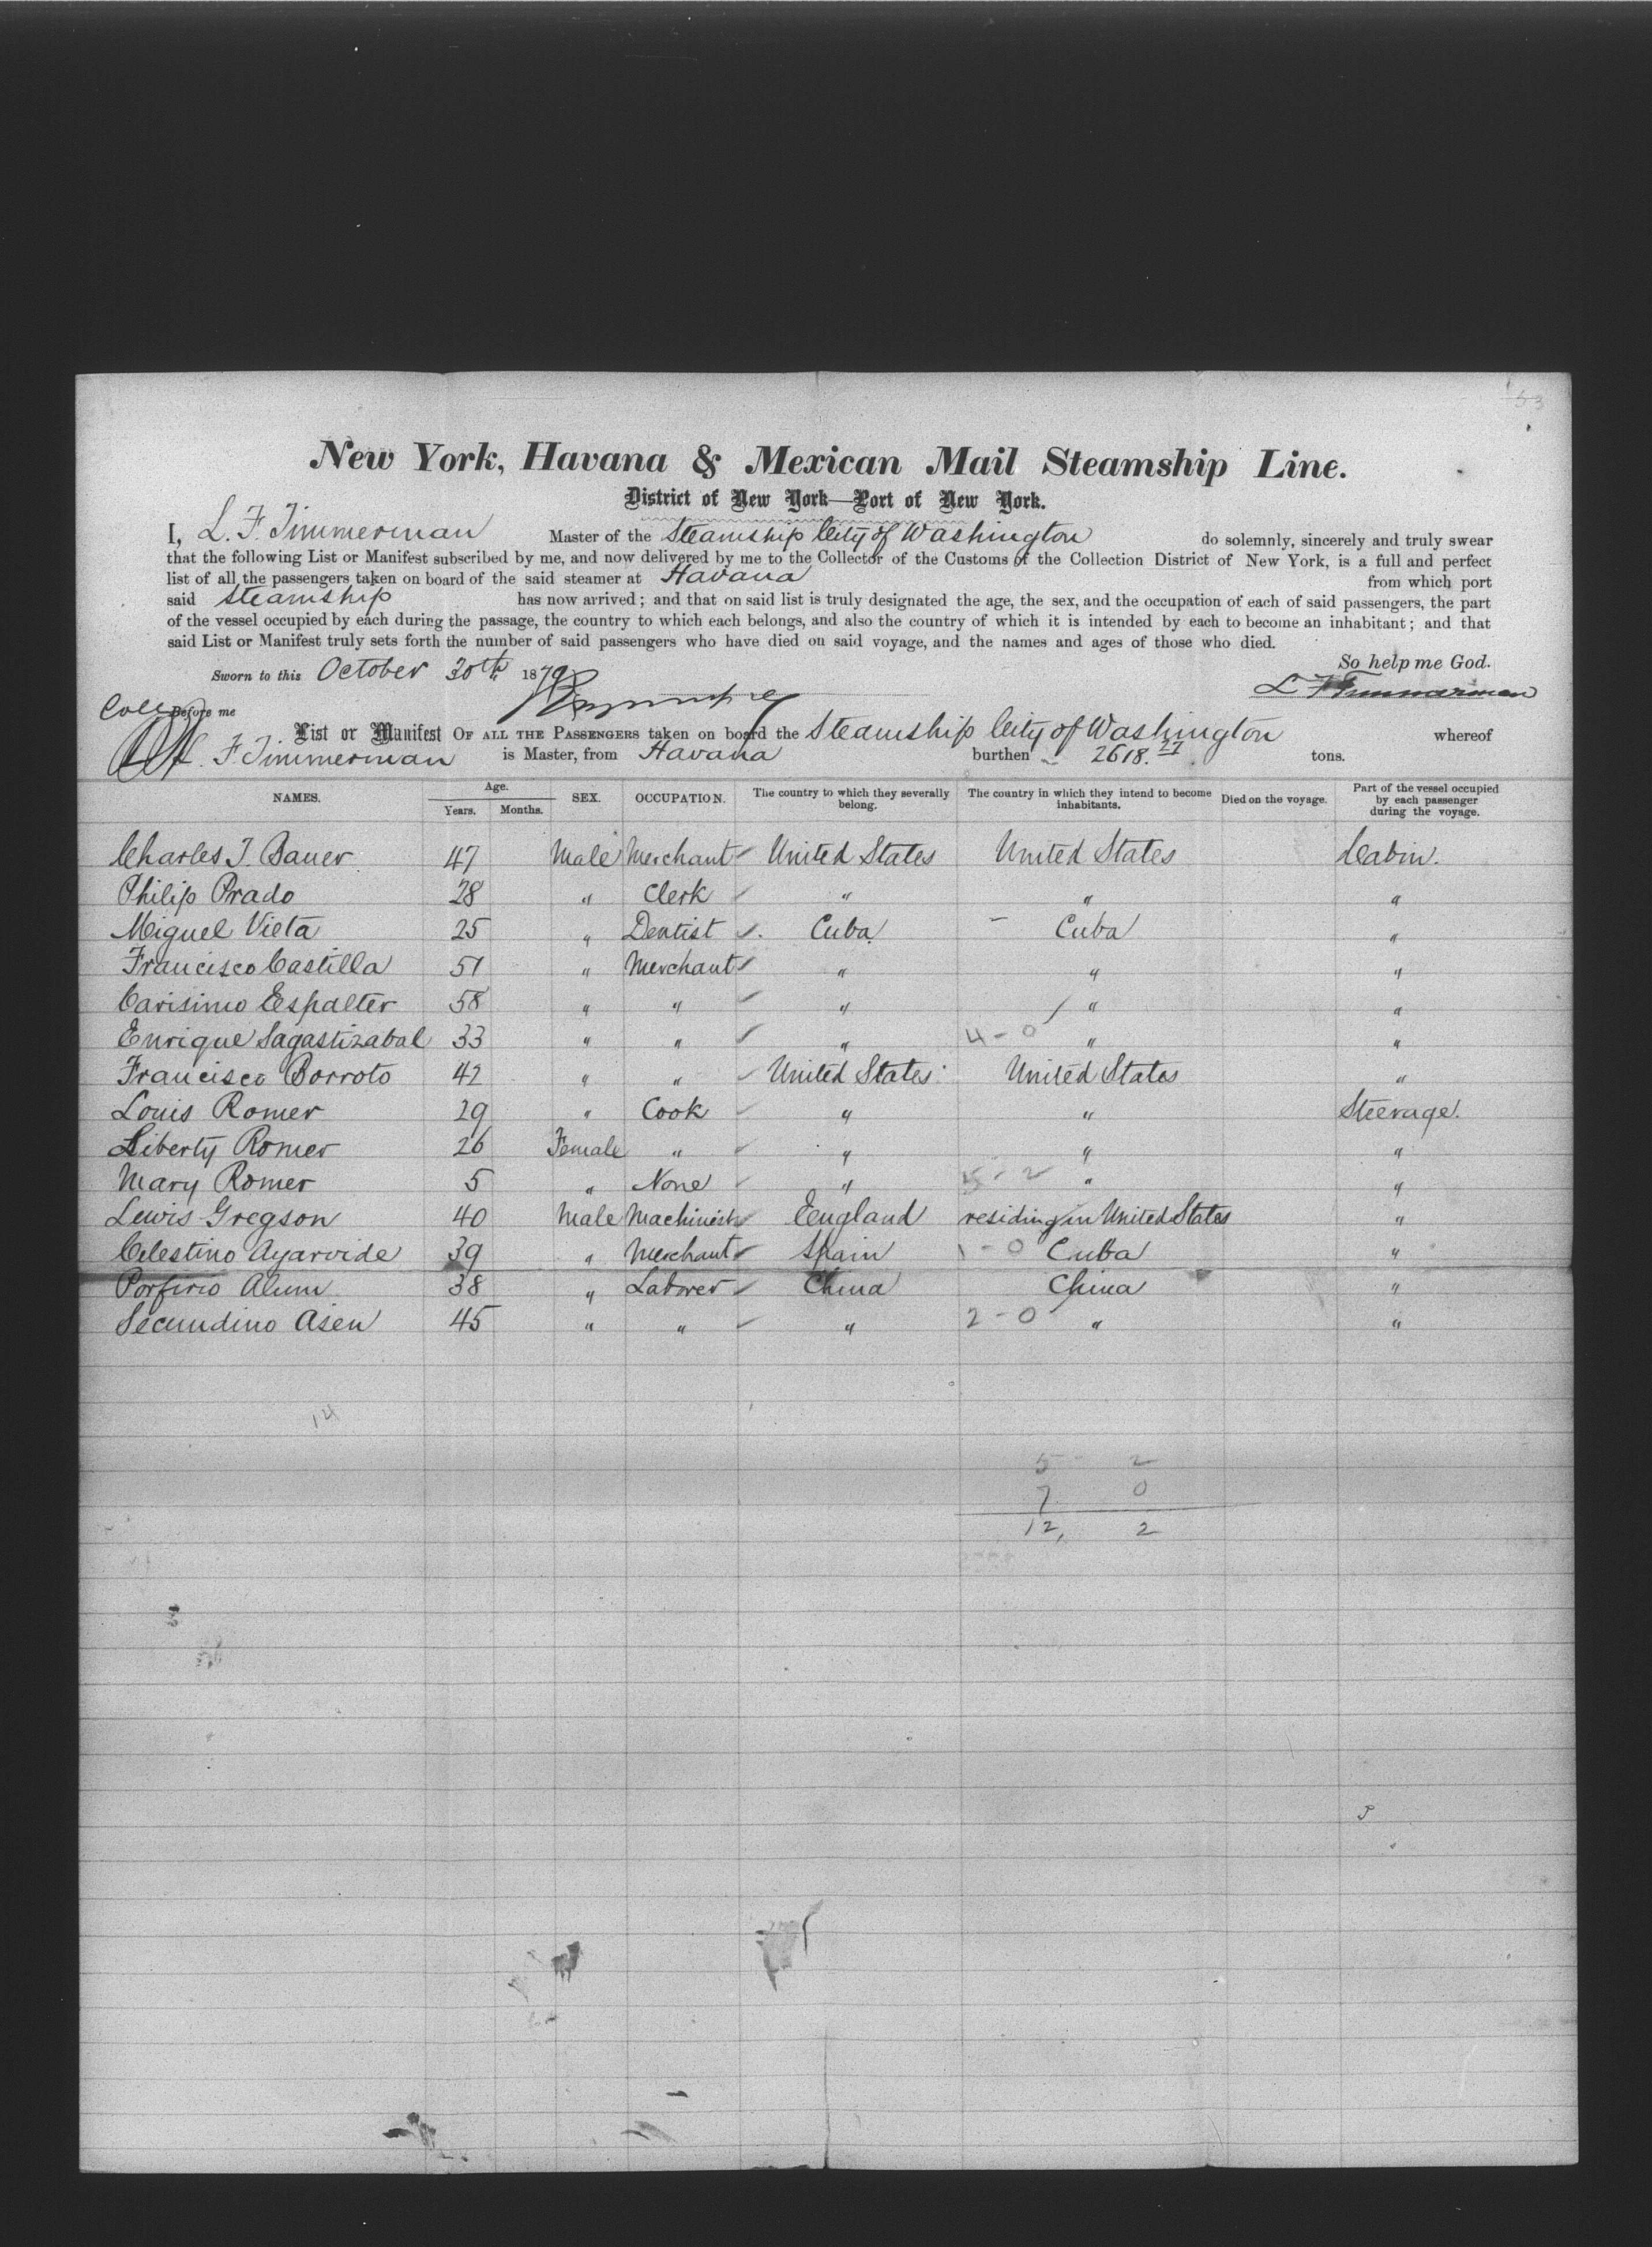 53
New York, Havana & Mexican Mail Steamship Line.
District of New York—Port of New York.
I, L. F. Timmerman Master of the Steamship City of Washington do solemnly, sincerely and truly swear
that the following List or Manifest subscribed by me, and now delivered by me to the Collector of the Customs of the Collection District of New York, is a full and perfect
list of all the passengers taken on board of the said steamer at Havana from which port
said Steamship has now arrived; and that on said list is truly designated the age, the sex, and the occupation of each of said passengers, the part
of the vessel occupied by each during the passage, the country to which each belongs, and also the country of which it is intended by each to become an inhabitant; and that
said List or Manifest truly sets forth the number of said passengers who have died on said voyage, and the names and ages of those who died.
So help me God.
Sworn to this October 30th 1879 L F Timmerman
Before me
List or Manifest OF ALL THE PASSENGERS taken on board the Steamship City of Washington whereof
L. F Timmerman is Master, from Havana burthen 2618. 27 tons.
NAMES. Age. Years. Months. SEX. OCCUPATION. The country to which they severally belong. The country in which they intend to become inhabitants. Died on the voyage. Part of the vessel occupied by each passenger during the voyage.
Charles J. Bauer 47 Male Merchant United States United States Cabin.
Philip Prado 28 " Clerk " " "
Miguel Vieta 25 " Dentist Cuba Cuba "
Francisco Castilla 51 " Merchant " " "
Carisimo Espalter 58 " " " " "
Enrique Sagastizabal 33 " " " 4-0 " "
Francisco Borroto 42 " " United States United States "
Louis Romer 29 " Cook " " Steerage.
Liberty Romer 26 Female " " " "
Mary Romer 5 " None " 5-2 " "
Lewis Gregson 40 Male Machinist England residing in United States "
Celestino Ayarvide 39 " Merchant Spain 1-0 Cuba "
Porfirio Alum 38 " Laborer China China "
Secundino Asen 45 " " " 2-0 " "
14
5 2
7 0
12, 2